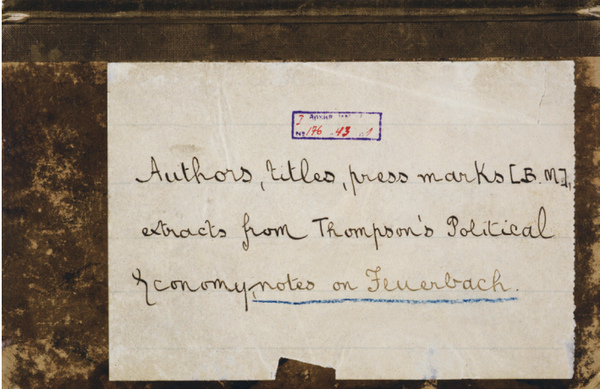 176 43
Authors, titles, press marks [B.M.],
extracts from Thompson's Political
Economy, notes on Feuerbach.